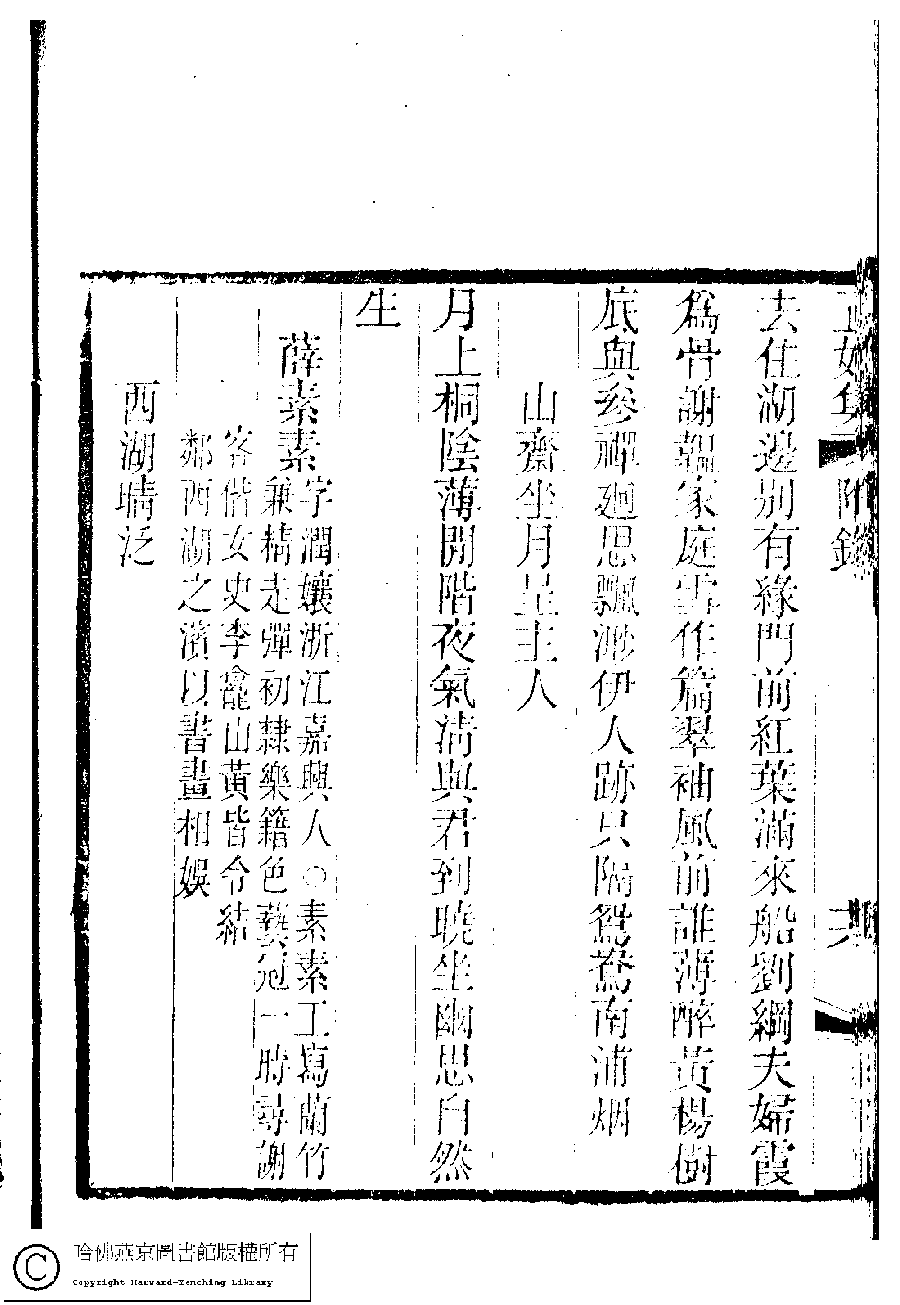 正始集 附錄
去住湖邊別有緣門前紅葉滿來船劉綱夫婦霞
爲骨謝韞家庭雪作篇翠袖風前誰薄醉黃楊樹
底與參禪廻思飄渺伊人跡只隔鴛鴦南浦烟
山齋坐月呈主人
月上桐陰薄閒階夜氣淸與君到曉坐幽思自然
生
薛素素字潤孃浙江嘉興人○素素工寫蘭竹
兼精走彈初隸樂籍色藝冠一時尋謝
客偕女史李龕山黃皆令結
鄰西湖之濱以書畫相娛
西湖晴泛
哈佛燕京圖書館版權所有
Copyright Harvard-Yenching Library